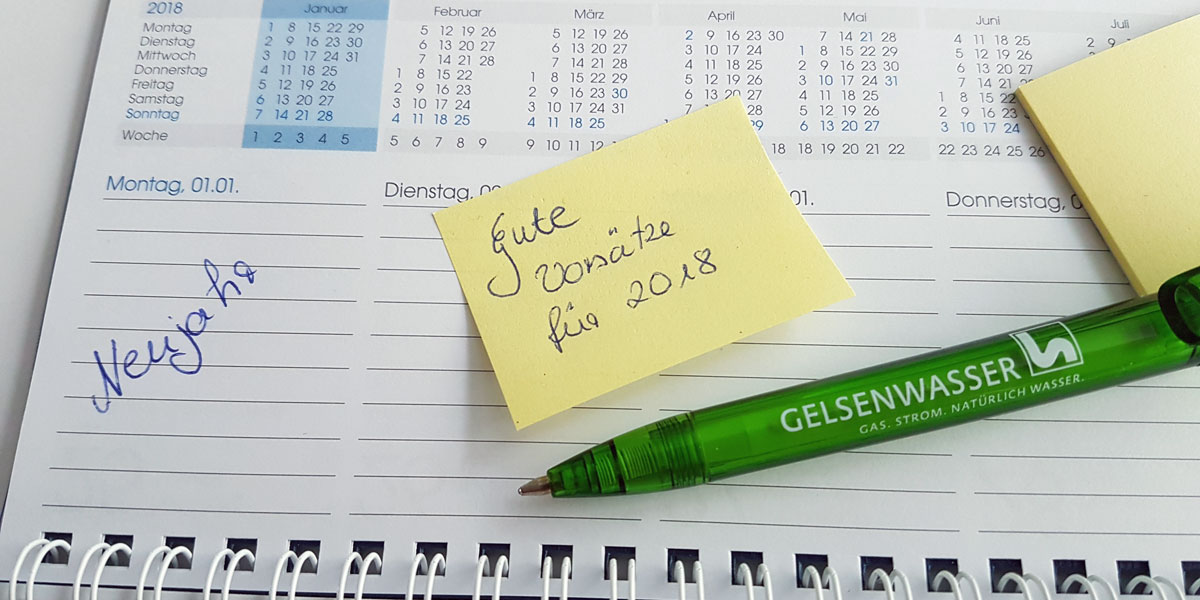 2018 Januar Februar März April Mai Juni Juli
Montag 1 8 15 22 29 5 12 19 26 5 12 19 26 2 9 16 23 30 7 14 21 28 4 11 18 25 2 9
Dienstag 2 9 16 23 30 6 13 20 27 6 13 20 27 3 10 17 24 1 8 15 22 29 5 12 19 26
Mittwoch 3 10 17 24 31 7 14 21 28 7 14 21 28 4 11 18 25 2 9 16 23 30 6 13 20 27
Donnerstag 4 11 18 25 1 8 15 22 1 8 15 22 29 5 12 19 26 3 10 17 24 31 7 14 21
Freitag 5 12 19 26 2 9 16 23 2 9 16 23 30 6 13 20 27 4 11 18 25 1 8 15 22
Samstag 6 13 20 27 3 10 17 24 3 10 17 24 31 7 28 5 12 19 26 2 9 16 23
Sonntag 7 14 21 28 4 11 18 25 4 11 18 25 29 6 13 20 27 3 10 17 24
Woche 1 2 3 4 5 5 6 7 8 9 9 10 11 12 18 18 19 20 21 22 22 23 24 25 26
Montag, 01.01.
Dienstag,
01.
Donnerstag,
Neujahr
Gute
Vorsätze
für 2018
GELSENWASSER
GAS. STROM. NATÜRLICH WASSER.